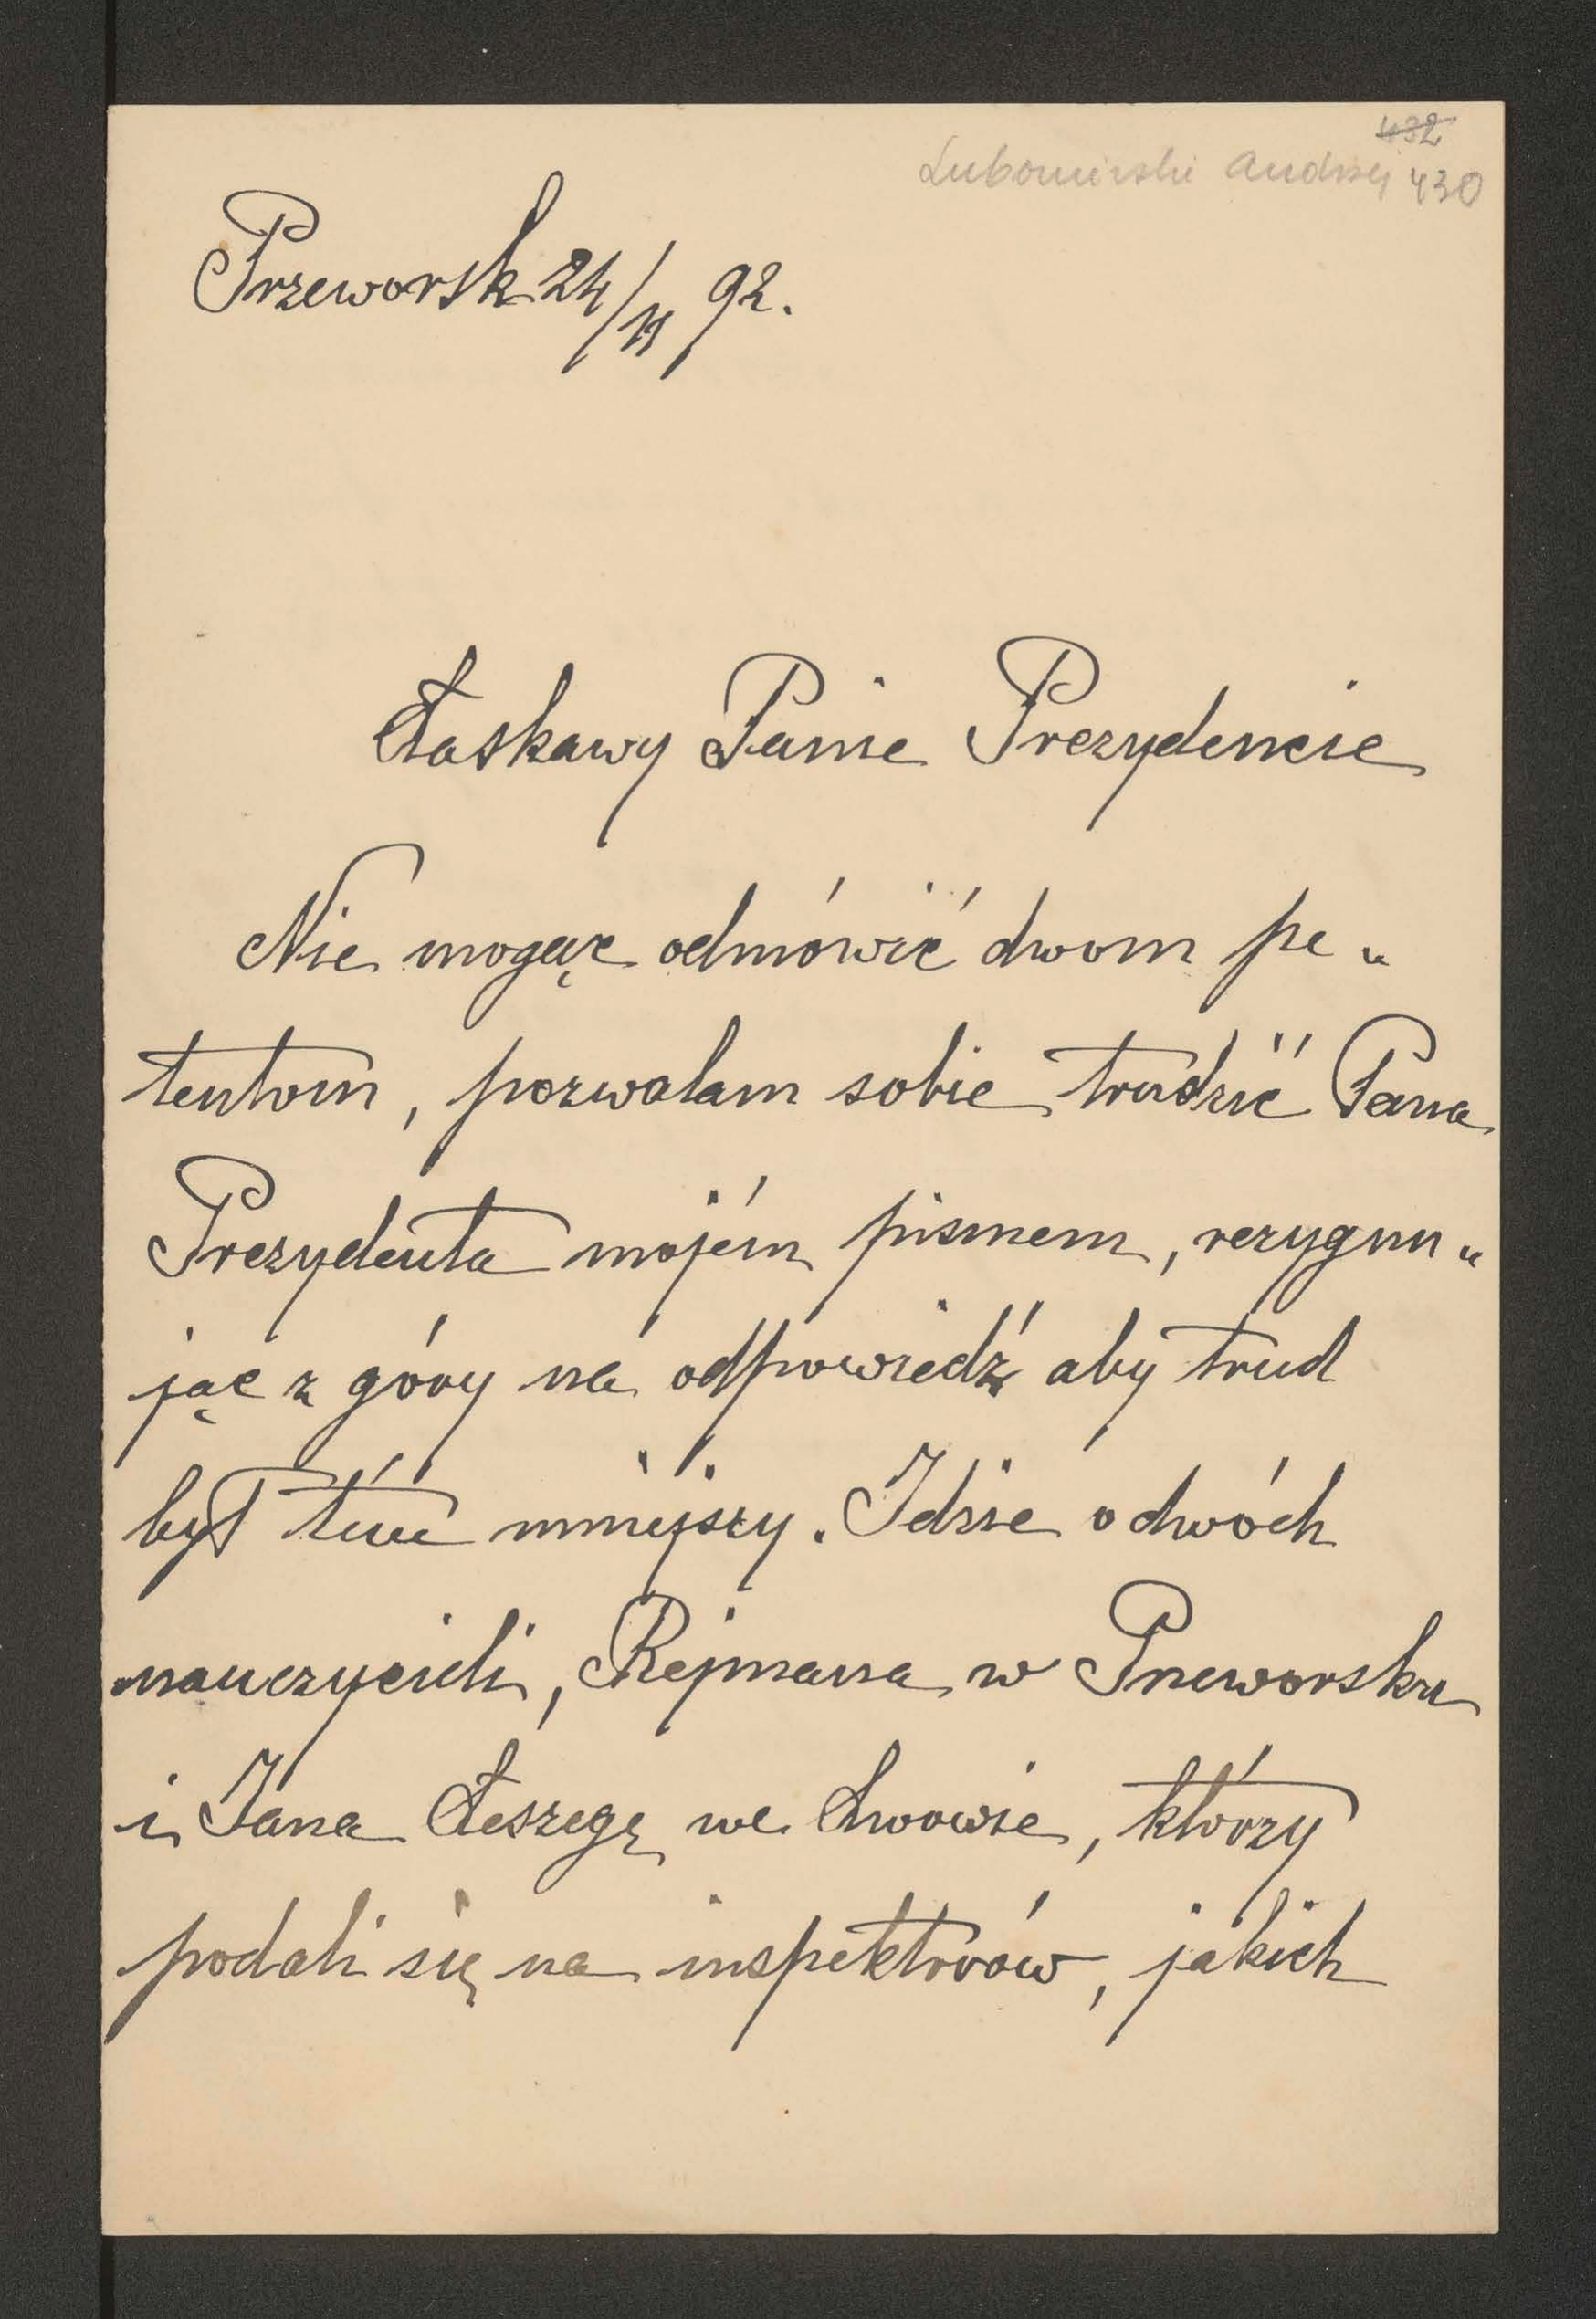 432
Lubomirski Andrzej 430
Przeworsk 24/11 92.
Łaskawy Panie Prezydencie
Nie mogąc odmówić dwom pe„
tentom, pozwalam sobie trudzić Pana
Prezydenta mojém pismem, rezygnu„
jąc z góry na odpowiedź aby trud
był tém mniejszy. Idzie o dwóch
nauczycieli, Rejmana w Przeworsku
i Jana Łeszegę we Lwowie, którzy
podali się na inspektorów, jakich